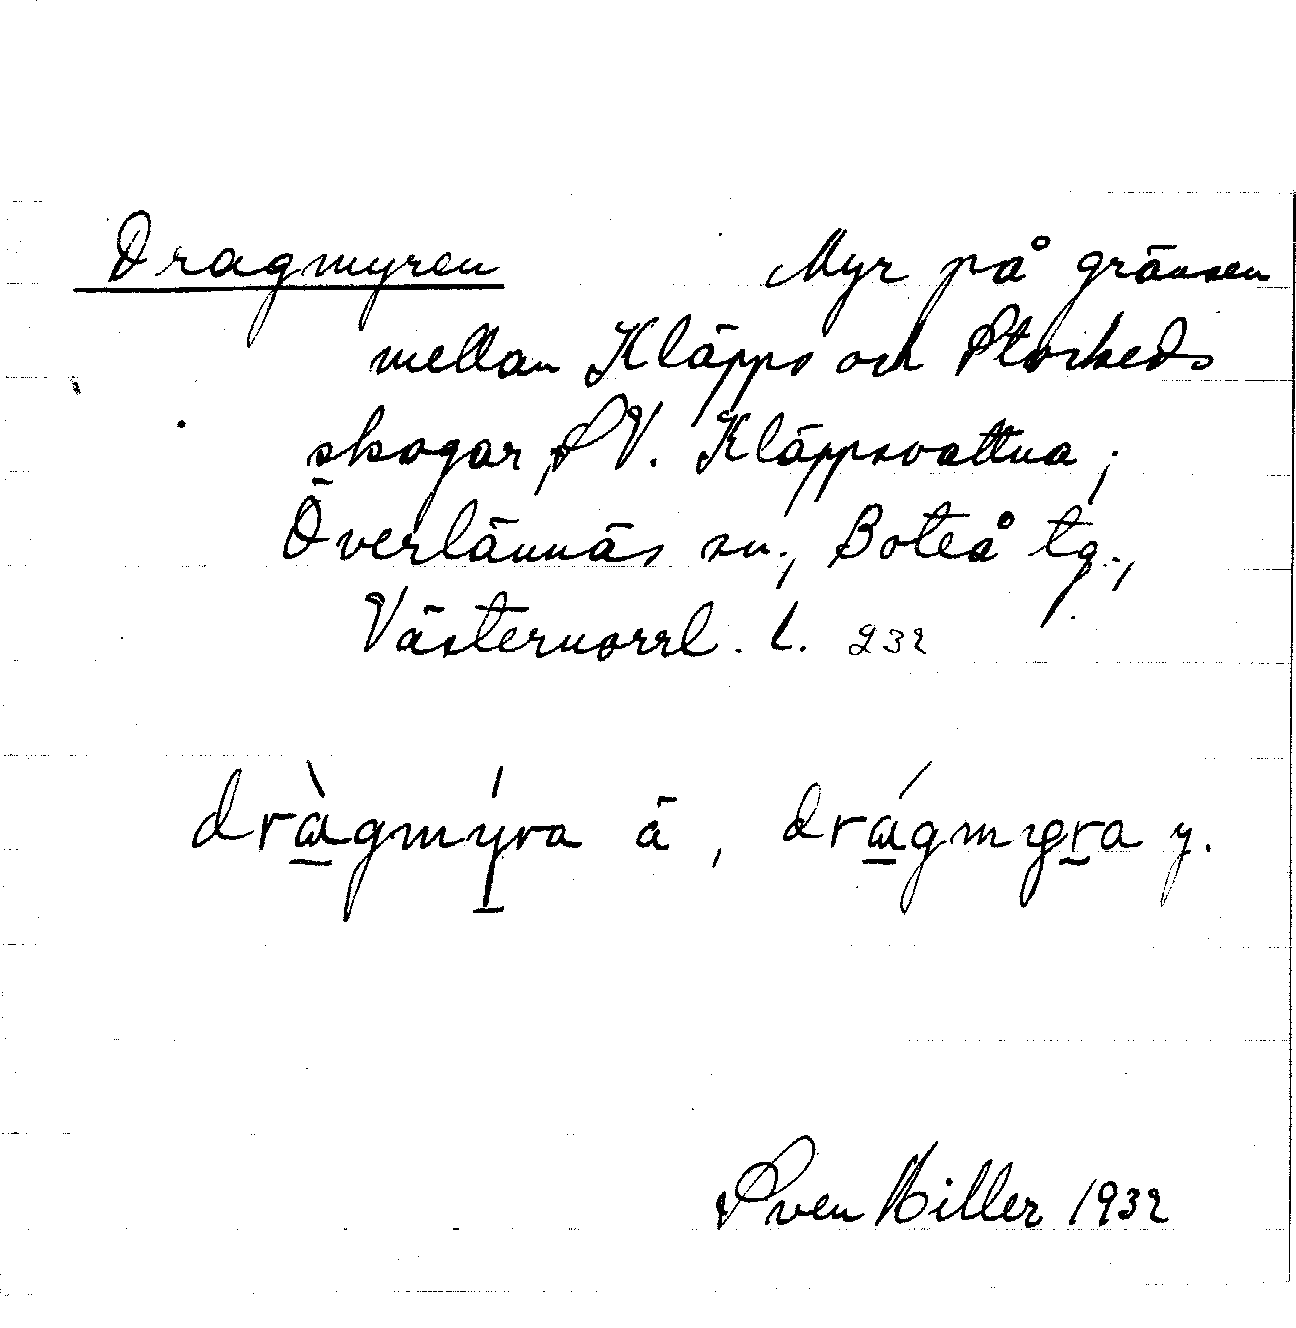 Dragmyren Myr på gränsen
mellan Kläpps och Storkeds
skogar, SV. Kläppsvattna;
Överlännäs sn., Boteå tg.,
Västernorrl. l. 232
dràgmýra ä, drágmyra y.
Sven Hiller 1932